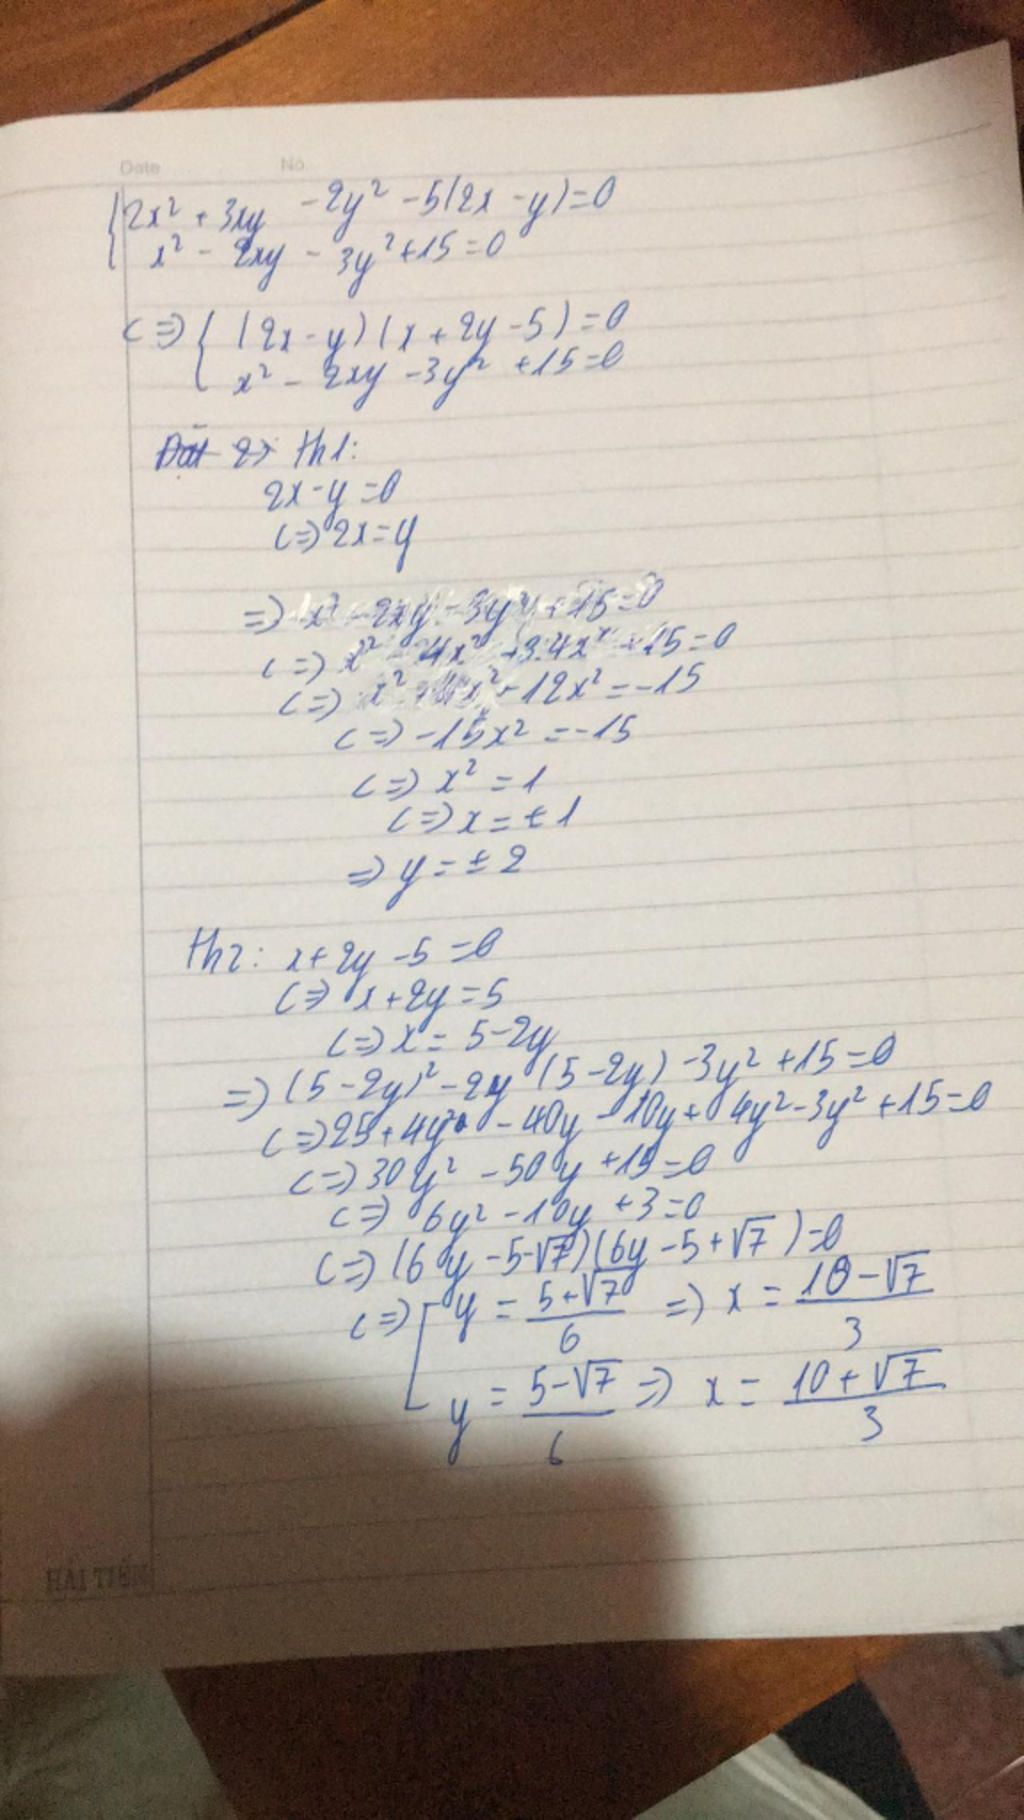 Date No.
{ 2x² + 3xy - 2y² - 5(2x - y) = 0
x² - 2xy - 3y² + 15 = 0
<=> { (2x - y)(x + 2y - 5) = 0
x² - 2xy - 3y² + 15 = 0
th1:
2x - y = 0
<=> 2x = y
=> x² - 2xy - 3y² + 15 = 0
<=> x² - 4x² + 3.4x² + 15 = 0
<=> x² - 4x² - 12x² = -15
<=> -15x² = -15
<=> x² = 1
<=> x = ±1
=> y = ±2
th2: x + 2y - 5 = 0
<=> x + 2y = 5
<=> x = 5 - 2y
=> (5 - 2y)² - 2y(5 - 2y) - 3y² + 15 = 0
<=> 25 + 4y² - 40y - 10y + 4y² - 3y² + 15 = 0
<=> 30y² - 50y + 15 = 0
<=> 6y² - 10y + 3 = 0
<=> (6y - 5 - √7)(6y - 5 + √7) = 0
<=> [ y = (5 + √7)/6 => x = (10 - √7)/3
y = (5 - √7)/6 => x = (10 + √7)/3
HẢI TIẾN